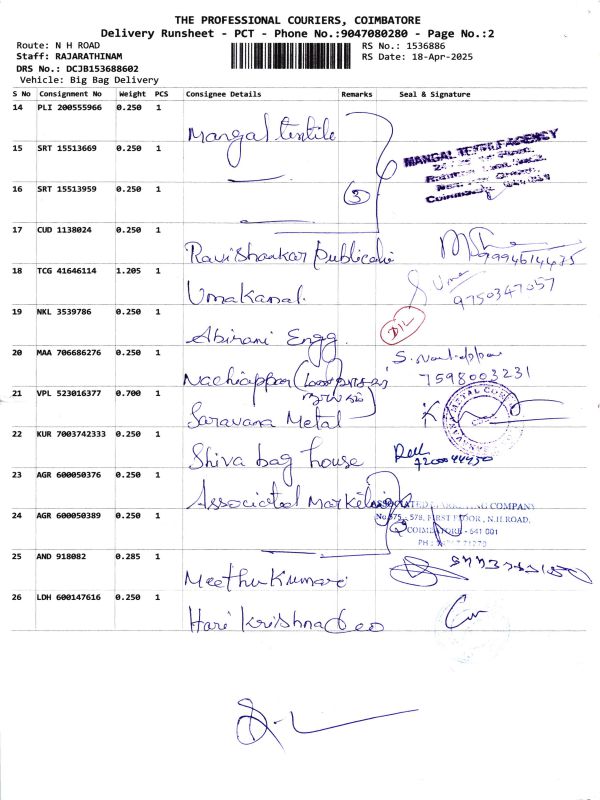 THE PROFESSIONAL COURIERS, COIMBATORE
Delivery Runsheet - PCT - Phone No.:9047080280 - Page No.:2
Route: N H ROAD
RS No.: 1536886
Staff: RAJARATHINAM
RS Date: 18-Apr-2025
DRS No.: DCJB153688602
Vehicle: Big Bag Delivery
S No Consignment No Weight PCS Consignee Details Remarks Seal & Signature
14 PLI 200555966 0.250 1 Mangal textile
15 SRT 15513669 0.250 1 MANGAL TEXTILE AGENCY
16 SRT 15513959 0.250 1 3
17 CUD 1138024 0.250 1 Ravishankar publication 9994614435
18 TCG 41646114 1.205 1 Umakamal Uma 9750347057
19 NKL 3539786 0.250 1 Abirami Engg. D/L
20 MAA 706686276 0.250 1 Nachiappan 7598003231
21 VPL 523016377 0.700 1 Saravana Metal
22 KUR 7003742333 0.250 1 Shiva bag house
23 AGR 600050376 0.250 1 Associated Marketing
24 AGR 600050389 0.250 1 MARKETING COMPANY
No.575 - 578, FIRST FLOOR, N.H.ROAD,
COIMBATORE - 641 001
25 AND 918082 0.285 1 Meethu Kumari
26 LDH 600147616 0.250 1 Hari Krishna & co